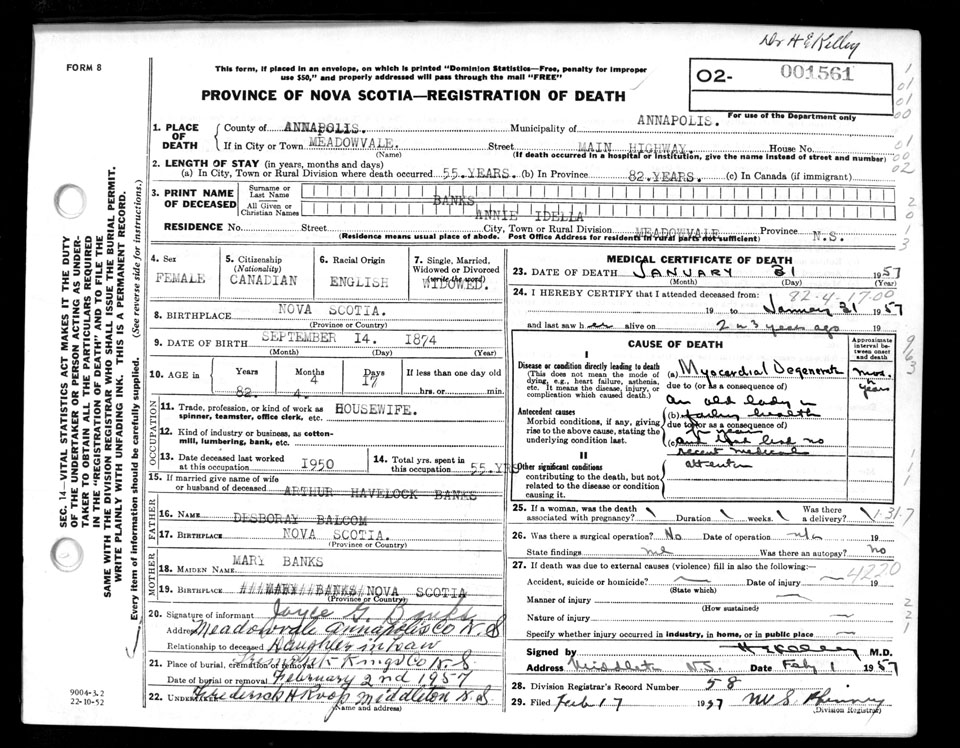 Dr H E Kelley
FORM 8
This form, if placed in an envelope, on which is printed "Dominion Statistics—Free, penalty for improper
use $50," and properly addressed will pass through the mail "FREE"
02- 001561
For use of the Department only
PROVINCE OF NOVA SCOTIA—REGISTRATION OF DEATH
SEC. 14—VITAL STATISTICS ACT MAKES IT THE DUTY
OF THE UNDERTAKER OR PERSON ACTING AS UNDER-
TAKER TO OBTAIN ALL THE PARTICULARS REQUIRED
IN THE "REGISTRATION OF DEATH" AND TO FILE THE
SAME WITH THE DIVISION REGISTRAR WHO SHALL ISSUE THE BURIAL PERMIT.
WRITE PLAINLY WITH UNFADING INK. THIS IS A PERMANENT RECORD.
Every item of information should be carefully supplied. (See reverse side for instructions.)
1. PLACE OF DEATH
County of ANNAPOLIS. Municipality of ANNAPOLIS.
If in City or Town MEADOWVALE. Street MAIN HIGHWAY. House No.
(Name) (If death occurred in a hospital or institution, give the name instead of street and number)
2. LENGTH OF STAY (in years, months and days)
(a) In City, Town or Rural Division where death occurred 55.YEARS. (b) In Province 82.YEARS. (c) In Canada (if immigrant)
3. PRINT NAME OF DECEASED
Surname or Last Name BANKS
All Given or Christian Names ANNIE IDELLA
RESIDENCE No. Street City, Town or Rural Division MEADOWVALE Province N.S.
(Residence means usual place of abode. Post Office Address for residents in rural parts not sufficient)
4. Sex
FEMALE
5. Citizenship (Nationality)
CANADIAN
6. Racial Origin
ENGLISH
7. Single, Married, Widowed or Divorced (write the word)
WIDOWED.
8. BIRTHPLACE NOVA SCOTIA.
(Province or Country)
9. DATE OF BIRTH SEPTEMBER 14. 1874
(Month) (Day) (Year)
10. AGE in Years Months Days If less than one day old
82. 4. 4 17 hrs. or min.
OCCUPATION
11. Trade, profession, or kind of work as spinner, teamster, office clerk, etc. HOUSEWIFE.
12. Kind of industry or business, as cotton-mill, lumbering, bank, etc.
13. Date deceased last worked at this occupation 1950
14. Total yrs. spent in this occupation 55.YRS
15. If married give name of wife or husband of deceased ARTHUR HAVELOCK BANKS
FATHER
16. NAME DESBORAY BALCOM
17. BIRTHPLACE NOVA SCOTIA.
(Province or Country)
MOTHER
18. MAIDEN NAME MARY BANKS
19. BIRTHPLACE ###MARY#BANKS#NOVA SCOTIA
(Province or Country)
20. Signature of informant Joyce G. Banks
Address Meadowvale Annapolis Co N.S
Relationship to deceased Daughter in law
21. Place of burial, cremation or removal Kings Co N.S.
Date of burial or removal February 2nd 1957
22. UNDERTAKER Frederick H Roop Middleton N.S
(Name and address)
9004-3.2
22-10-52
MEDICAL CERTIFICATE OF DEATH
23. DATE OF DEATH JANUARY 31 1957
(Month) (Day) (Year)
24. I HEREBY CERTIFY that I attended deceased from: 82-4-17-00
19 to January 31 1957
and last saw her alive on 2 or 3 years ago 19
CAUSE OF DEATH
Approximate interval between onset and death
I
Disease or condition directly leading to death
(This does not mean the mode of dying, e.g., heart failure, asthenia, etc. It means the disease, injury, or complication which caused death.)
(a) Myocardial Degenerate
mos. or years
due to (or as a consequence of)
An old lady in
Antecedent causes
Morbid conditions, if any, giving rise to the above cause, stating the underlying condition last.
(b) failing health
due to (or as a consequence of)
(c) and had had no
recent medical
attention
II
Other significant conditions
contributing to the death, but not related to the disease or condition causing it.
25. If a woman, was the death associated with pregnancy? Duration weeks. Was there a delivery?
1-31-7
26. Was there a surgical operation? No Date of operation n/a 19
State findings Was there an autopsy? no
27. If death was due to external causes (violence) fill in also the following:—
4220
Accident, suicide or homicide? Date of injury 19
(State which)
Manner of injury
(How sustained)
Nature of injury
Specify whether injury occurred in industry, in home, or in public place
Signed by H E Kelley M.D.
Address Middleton N.S. Date Feb 1 1957
28. Division Registrar's Record Number 58
29. Filed Feb 17 1957
Division Registrar